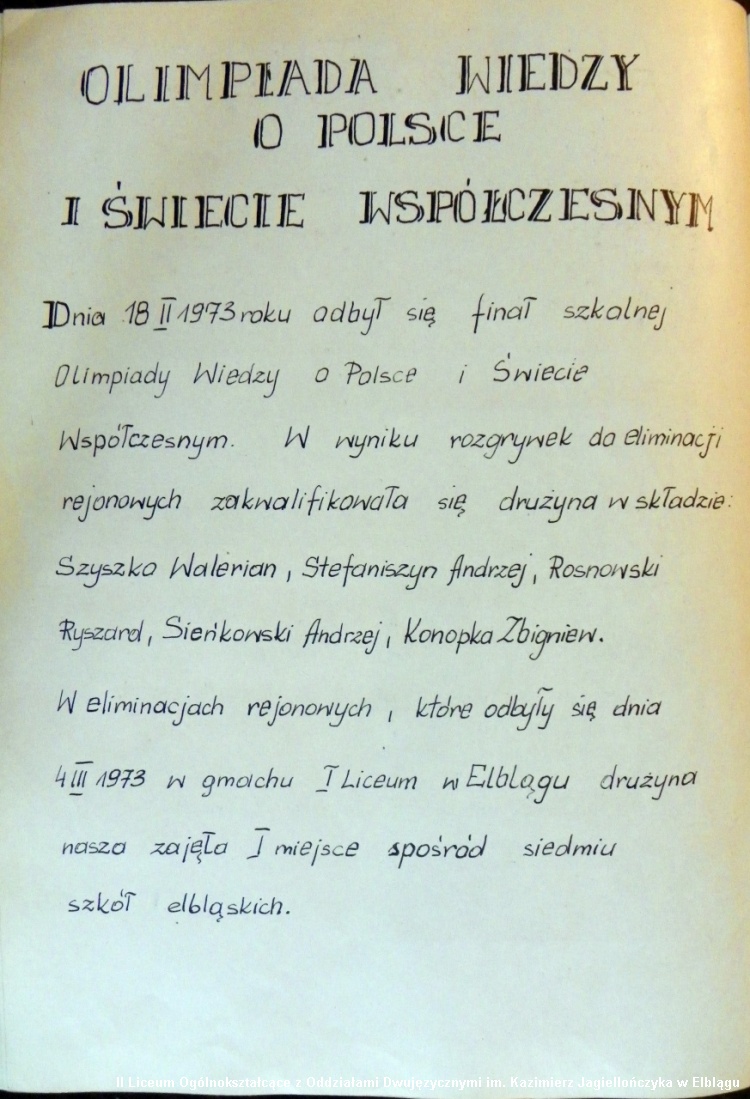 OLIMPIADA WIEDZY
O POLSCE
I ŚWIECIE WSPÓŁCZESNYM
Dnia 18 II 1973 roku odbył się finał szkolnej
Olimpiady Wiedzy o Polsce i Świecie
Współczesnym. W wyniku rozgrywek do eliminacji
rejonowych zakwalifikowała się drużyna w składzie:
Szyszko Walerian, Stefaniszyn Andrzej, Rosnowski
Ryszard, Sieńkowski Andrzej, Konopka Zbigniew.
W eliminacjach rejonowych, które odbyły się dnia
4 III 1973 w gmachu I Liceum w Elblągu drużyna
nasza zajęła I miejsce spośród siedmiu
szkół elbląskich.
II Liceum Ogólnokształcące z Oddziałami Dwujęzycznymi im. Kazimierz Jagiellończyka w Elblągu